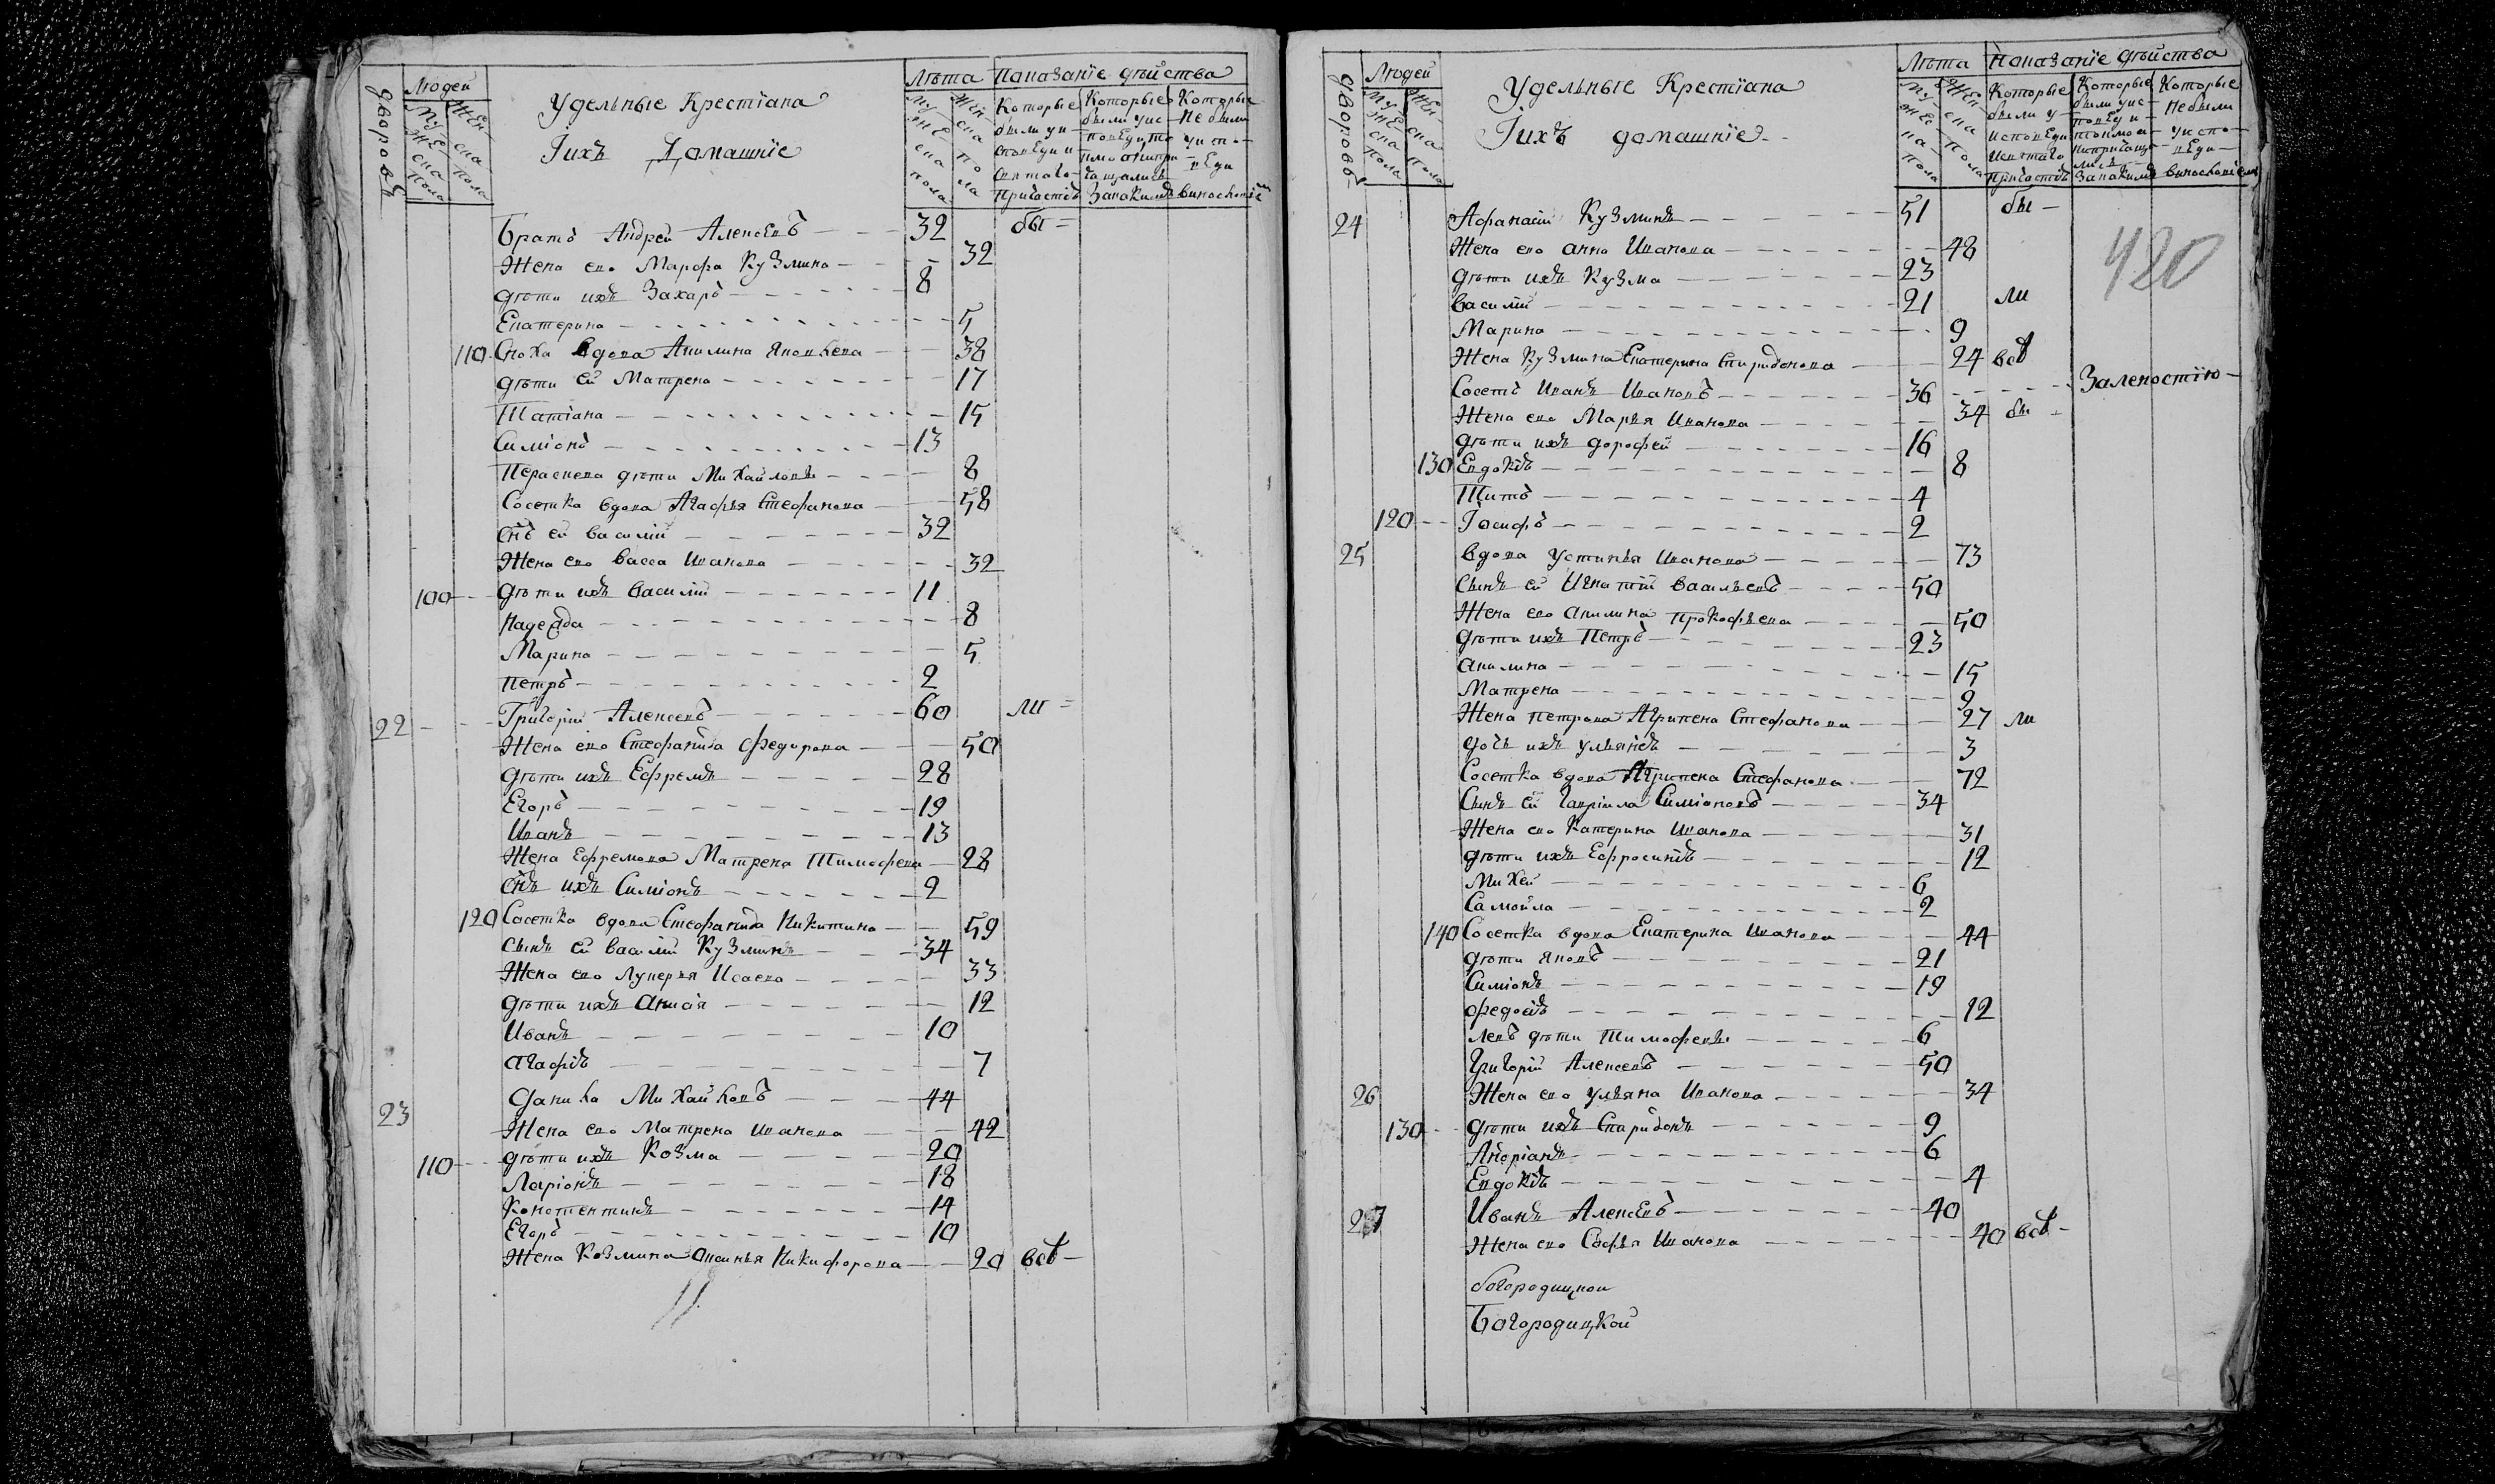 дворовъ
Людей
Мужеска пола
Женска пола
Удельные Крестїана
Iихъ Домашнїе
Лѣта
Мужеска пола
Женска пола
Показанїе дѣйства
Которые были у исповеди и святаго причастїя
Которые были у исповеди, а не причащались
Которые не были у исповеди
Братъ Андрей Алексеевъ 32 бы
Жена ево Марфа Кузмина 32
дѣти ихъ Захаръ 8
Екатерина 5
110 Сноха вдова Акилина Яковлева 38
дѣти ей Матрена 17
Татїана 15
Симїонъ 13
Пераскева дѣти Михайловы 8
Соседка вдова Агафья Стефанова 58
снъ ей василїй 32
Жена ево васса Иванова 32
100 дѣти ихъ василїй 11
Надежда 8
Марина 5
Петръ 2
22 Григорїй Алексеевъ 60 ли
Жена ево Стефанида Федорова 50
дѣти ихъ Ефремъ 28
Егоръ 19
Иванъ 13
Жена Ефремова Матрена Тимофева 28
снъ ихъ Симїонъ 2
120 Соседка вдова Стефанида Никитина 59
Сынъ ей василїй Кузминъ 34
Жена ево Лукерья Исаева 33
дѣти ихъ Анисїя 12
Иванъ 10
Агафїя 7
23 Данила Михайловъ 44
Жена ево Матрена Иванова 42
110 дѣти ихъ Козма 20
Ларїонъ 18
Констентинъ 14
Егоръ 10
Жена Козмина Аксинья Никифорова 20 всѣ
дворовъ
Людей
Мужеска пола
Женска пола
Удельные Крестїана
Iихъ домашнїе
Лѣта
Мужеска пола
Женска пола
Показанїе дѣйства
Которые были у исповеди и святаго причастїя
Которые не были у исповеди
420
24 Афанасїй Кузминъ 51 бы
Жена ево анна Иванова 48
дѣти ихъ Кузма 23
василїй 21 ли
Марина 9
Жена Кузмина Екатерина Спиридонова 24 всѣ
Соседъ Иванъ Ивановъ 36 Заленостїю
Жена ево Марья Иванова 34 бы
дѣти ихъ дорофей 16
130 Евдокїя 8
Титъ 4
120 Iосифъ 2
25 вдова устинья Иванова 73
Сынъ ей Игнатїй васильевъ 50
Жена ево акилина Прокофьева 50
дѣти ихъ Петръ 23
акилина 15
Матрена 9
Жена петрова Агрипена Стефанова 27 ли
дочь ихъ ульянїя 3
Соседка вдова Агрипена Стефанова 72
Сынъ ей Гаврїила Симїоновъ 34
Жена ево Катерина Иванова 31
дѣти ихъ Ефросинїя 12
Михей 6
Самойла 2
140 Соседка вдова Екатерина Иванова 44
дѣти Яковъ 21
Симїонъ 19
федосїя 12
Левъ дѣти Тимофевы 6
Григорїй Алексеевъ 50
26 Жена ево ульяна Иванова 34
130 дѣти ихъ Спиридонъ 9
Андрїанъ 6
Евдокїя 4
27 Иванъ Алексеевъ 40
Жена ево Софья Иванова 40 всѣ
богородицкои
Богородицкой